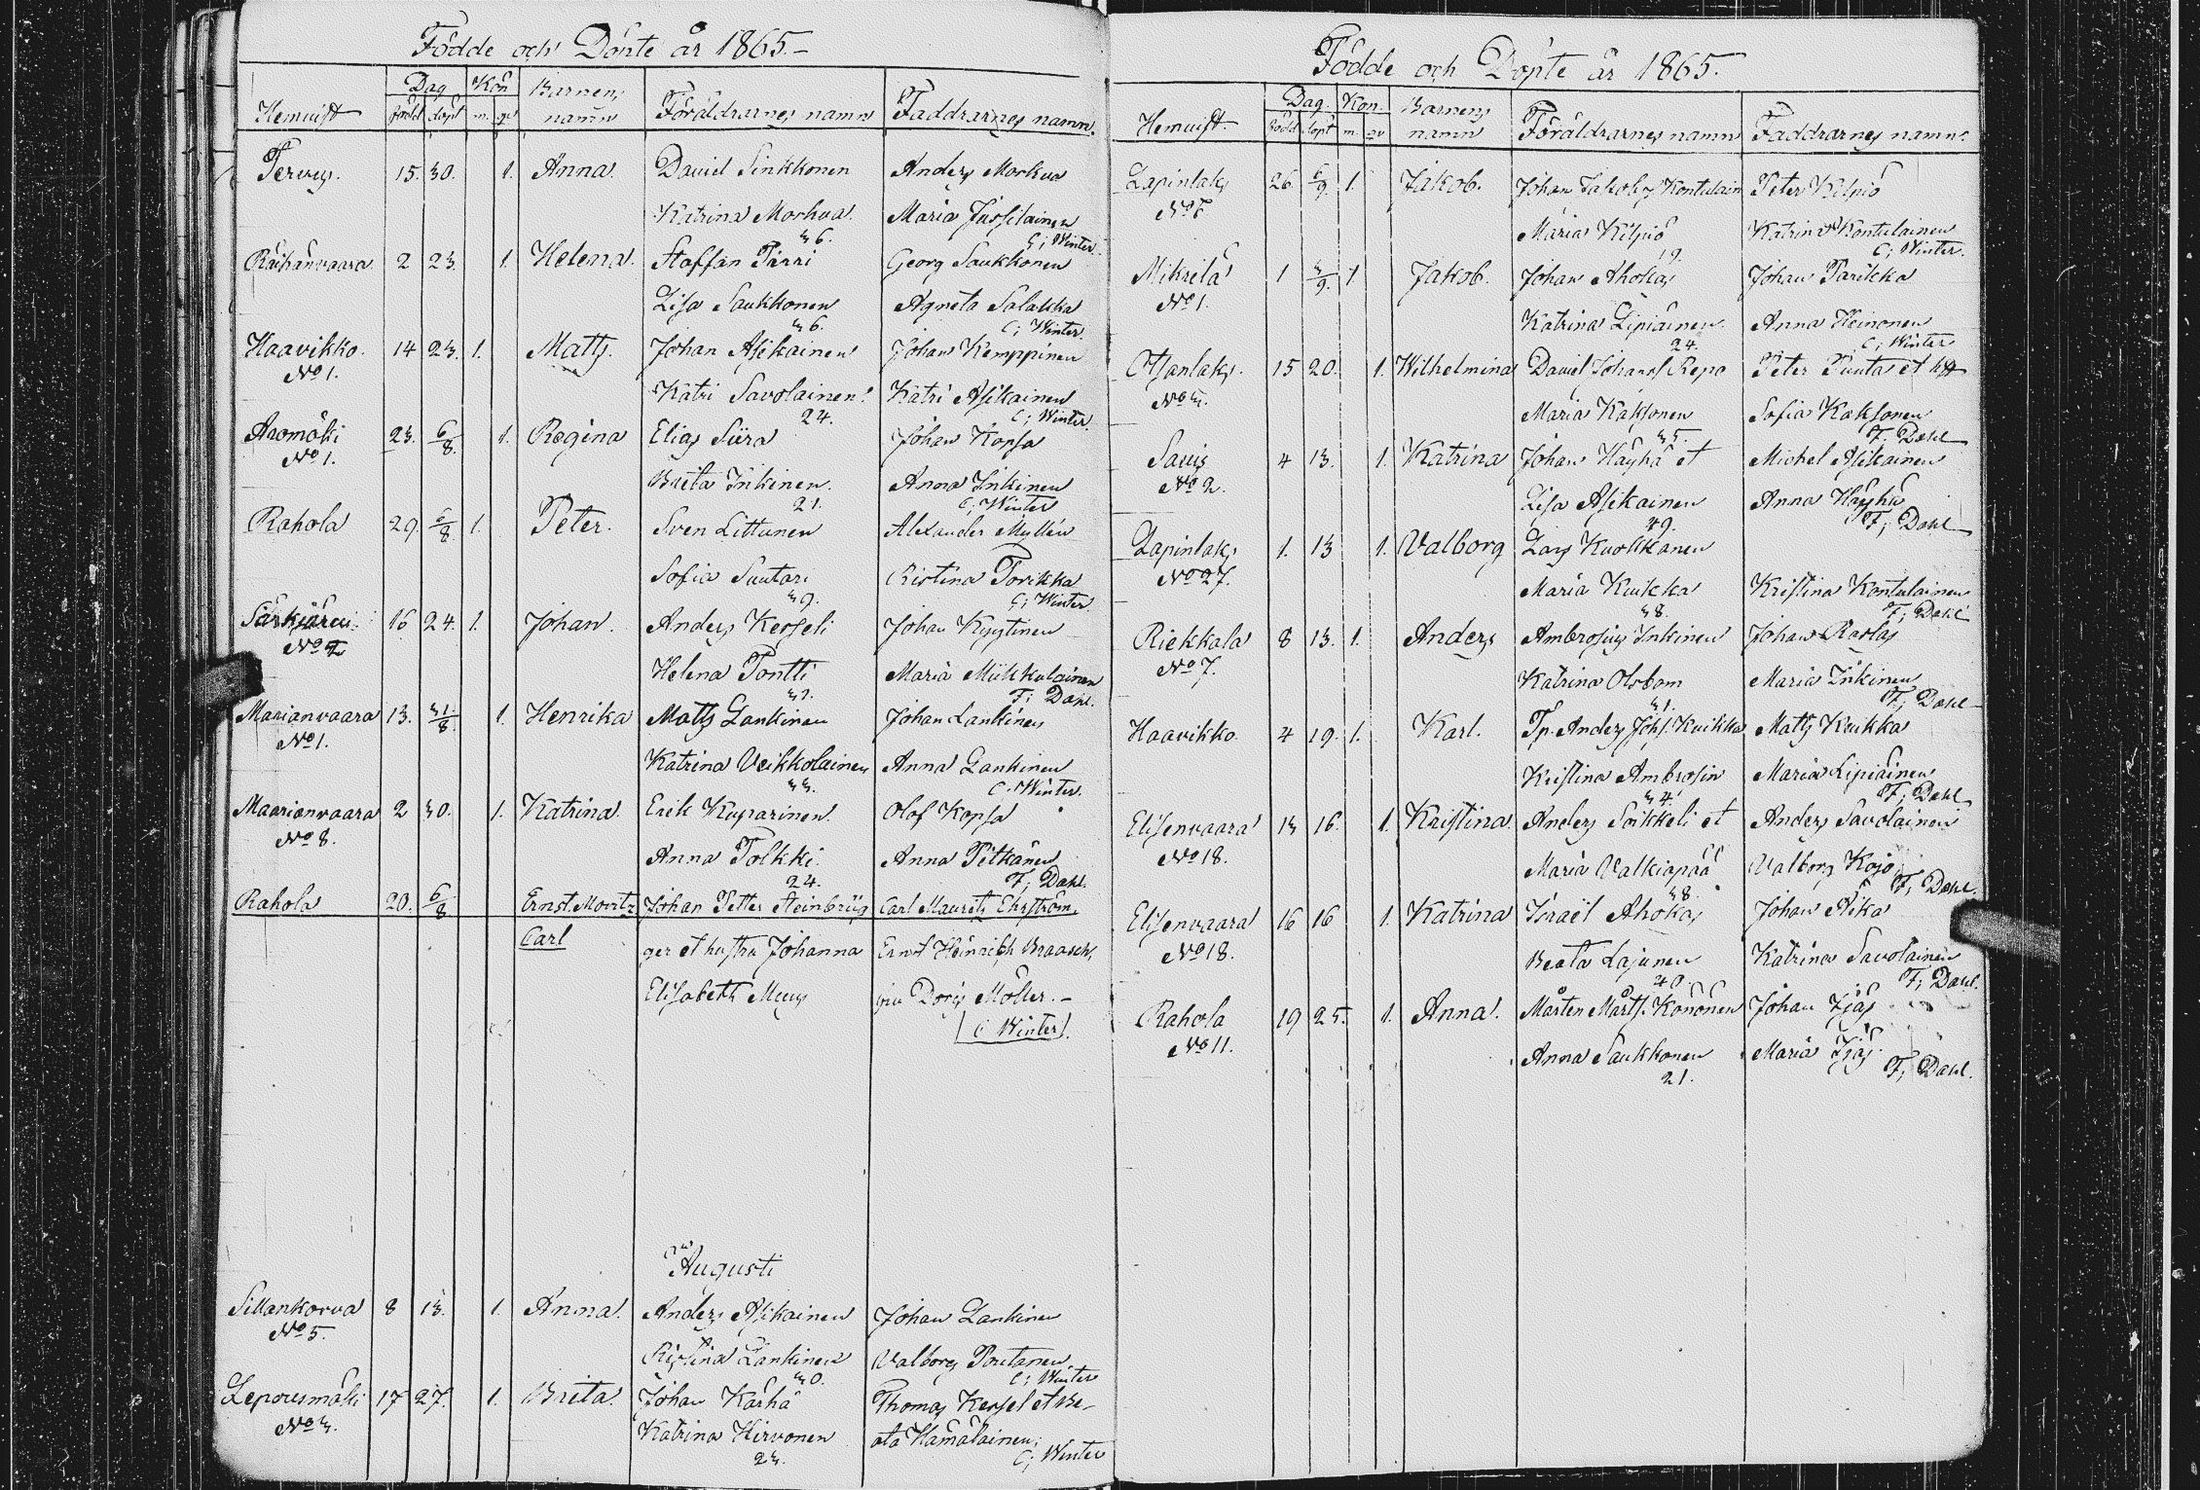 Födde och Döpte år 1865.
Hemvist Dag Kön Barnens namn Föräldrarnes namn Faddrarnes namn.
född döpt m. qv
Tervus. 15. 30. 1. Anna. David Sinkkonen Anders Morkua
Katrina Morkua. Maria Jussilainen
36. C; Winter.
Räihänvaara 2 23. 1. Helena. Staffan Pärri Georg Saukkonen
Lisa Saukkonen Agneta Salakka
36. C; Winter.
Haavikko. 14 23. 1. Matts. Johan Asikainen Johan Kemppinen
No 1.
Katri Savolainen Katri Asikainen
24. C; Winter.
Aromäki 23. 6/8. 1. Regina Elias Siira Johan Kopsa
No 1.
Brita Inkinen. Anna Inkinen
21. C; Winter
Rahola 29. 6/8 1. Peter. Sven Littunen Alexander Myllén
Sofia Suutari Kristina Torikka
39. C; Winter
Särkjärvi 16 24. 1. Johan. Anders Kesseli Johan Kyytinen
No 2
Helena Pontti Maria Mikkulainen
F; Dahl.
Marianvaara 13. 31/8. 1. Henrika Matts Lankinen Johan Lankinen
No 1.
Katrina Veikkolainen Anna Lankinen
33. C. Winter.
Maarianvaara 2 30. 1. Katrina. Erik Kuparinen. Olof Kopsa
No 8.
Anna Tolkki. Anna Pitkänen
24. F; Dahl.
Rahola 20. 6/8 Ernst. Moritz Johan Petter Steinbrüg Carl Mauritz Ehrström,
Carl ger et hustru Johanna Ernst Heinrich Braasch,
Elisabeth Meuy Doris Möller.
C Winter).
Augusti
Sillankorva 8 13. 1. Anna. Anders Asikainen Johan Lankinen
No 5.
Kristina Lankinen Valborg Poutanen
30. C; Winter
Leporusmäki 17 27. 1. Brita. Johan Kärhä Thomas Kessel et Be-
No 3.
Katrina Hirvonen ata Hämäläinen;
23. C; Winter
Födde och Döpte år 1865.
Hemvist. Dag. Kön. Barnens namn Föräldrarnes namn Faddrarnes namn.
född döpt m qv
Lapinlaks 26 6/9. 1. Jakob. Johan Jakobs Kontulain Peter Kilpiö
No 6
Maria Kilpiö Katrina Kontulainen
19. C; Winter.
Mikrilä 1 3/9. 1 Jakob. Johan Ahokas Johan Parikka
No 1.
Katrina Lipiäinen. Anna Heinonen
24. C; Winter
Otsanlaks. 15 20. 1. Wilhelmina David Johanss Repo Peter Puuta et
No 3.
Maria Kaksonen Sofia Kaksonen
35. F. Dahl
Sauis 4 13. 1. Katrina Johan Häyhä et Michel Asikainen
No 2.
Lisa Asikainen Anna Häyhä
49. F; Dahl
Lapinlaks 1. 13 1. Valborg Lars Kuokkanen
No 27.
Maria Kuikka Kristina Kontulainen
38. F; Dahl
Riekkala 8 13. 1. Anders Ambrosius Inkinen Johan Raslas
No 7.
Katrina Olsbom Maria Inkinen
31. F; Dahl
Haavikko. 4 19. 1. Karl. Tp. Anders Johs. Kuikka Matts Kuikka
Kristina Ambrosin Maria Lipiäinen
34. F; Dahl
Elisenvaara 13 16. 1. Kristina. Anders Soikkeli et Anders Savolainen
No 18.
Maria Valkiapää Valborg Kojo
38. F; Dahl.
Elisenvaara 16 16 1. Katrina Israël Ahokas Johan Aika
No 18.
Beata Lajunen Katrina Savolainen
40. F; Dahl.
Rahola 19 25. 1. Anna. Mårten Mårts. Kononen Johan Ijäs
No 11.
Anna Saukkonen Maria Ijäs
21. F; Dahl.